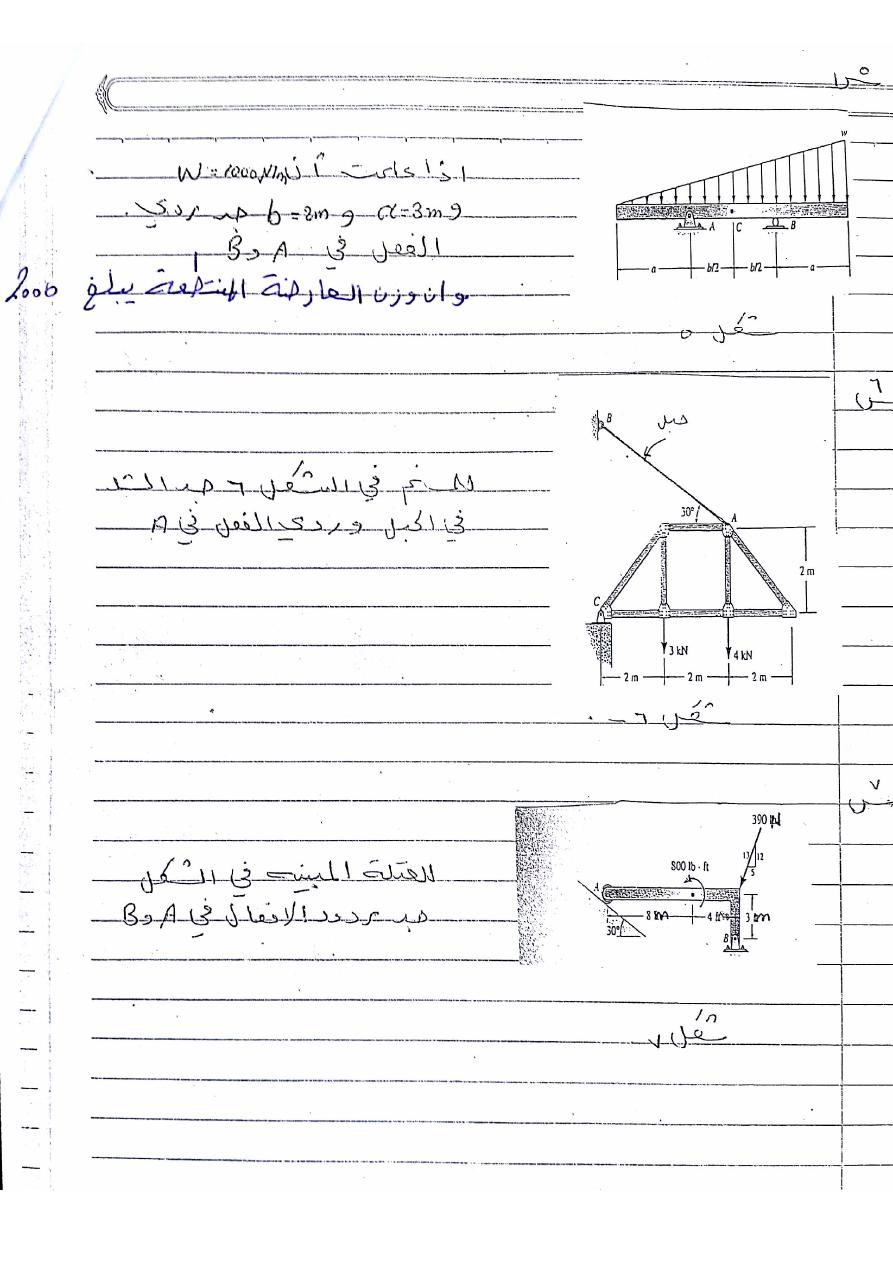 س٥
اذا علمت أن W=1000N/m
و a=3m و b=2m جد ردي
الفعل في A و B
وان وزن العارضة المنتظمة يبلغ 2000
w
A C B
a b/2 b/2 a
شكل ٥
س٦
B
حبل
للمسنم في الشكل ٦ جد الشد
في الحبل وردي الفعل في A
30° A
2 m
C
3 kN 4 kN
2 m 2 m 2 m
شكل ٦
س٧
390 N
للعتلة المبينة في الشكل
جد ردود الافعال في A و B
800 lb · ft
13 12
5
A
8 m 4 3 m
30°
B
شكل ٧